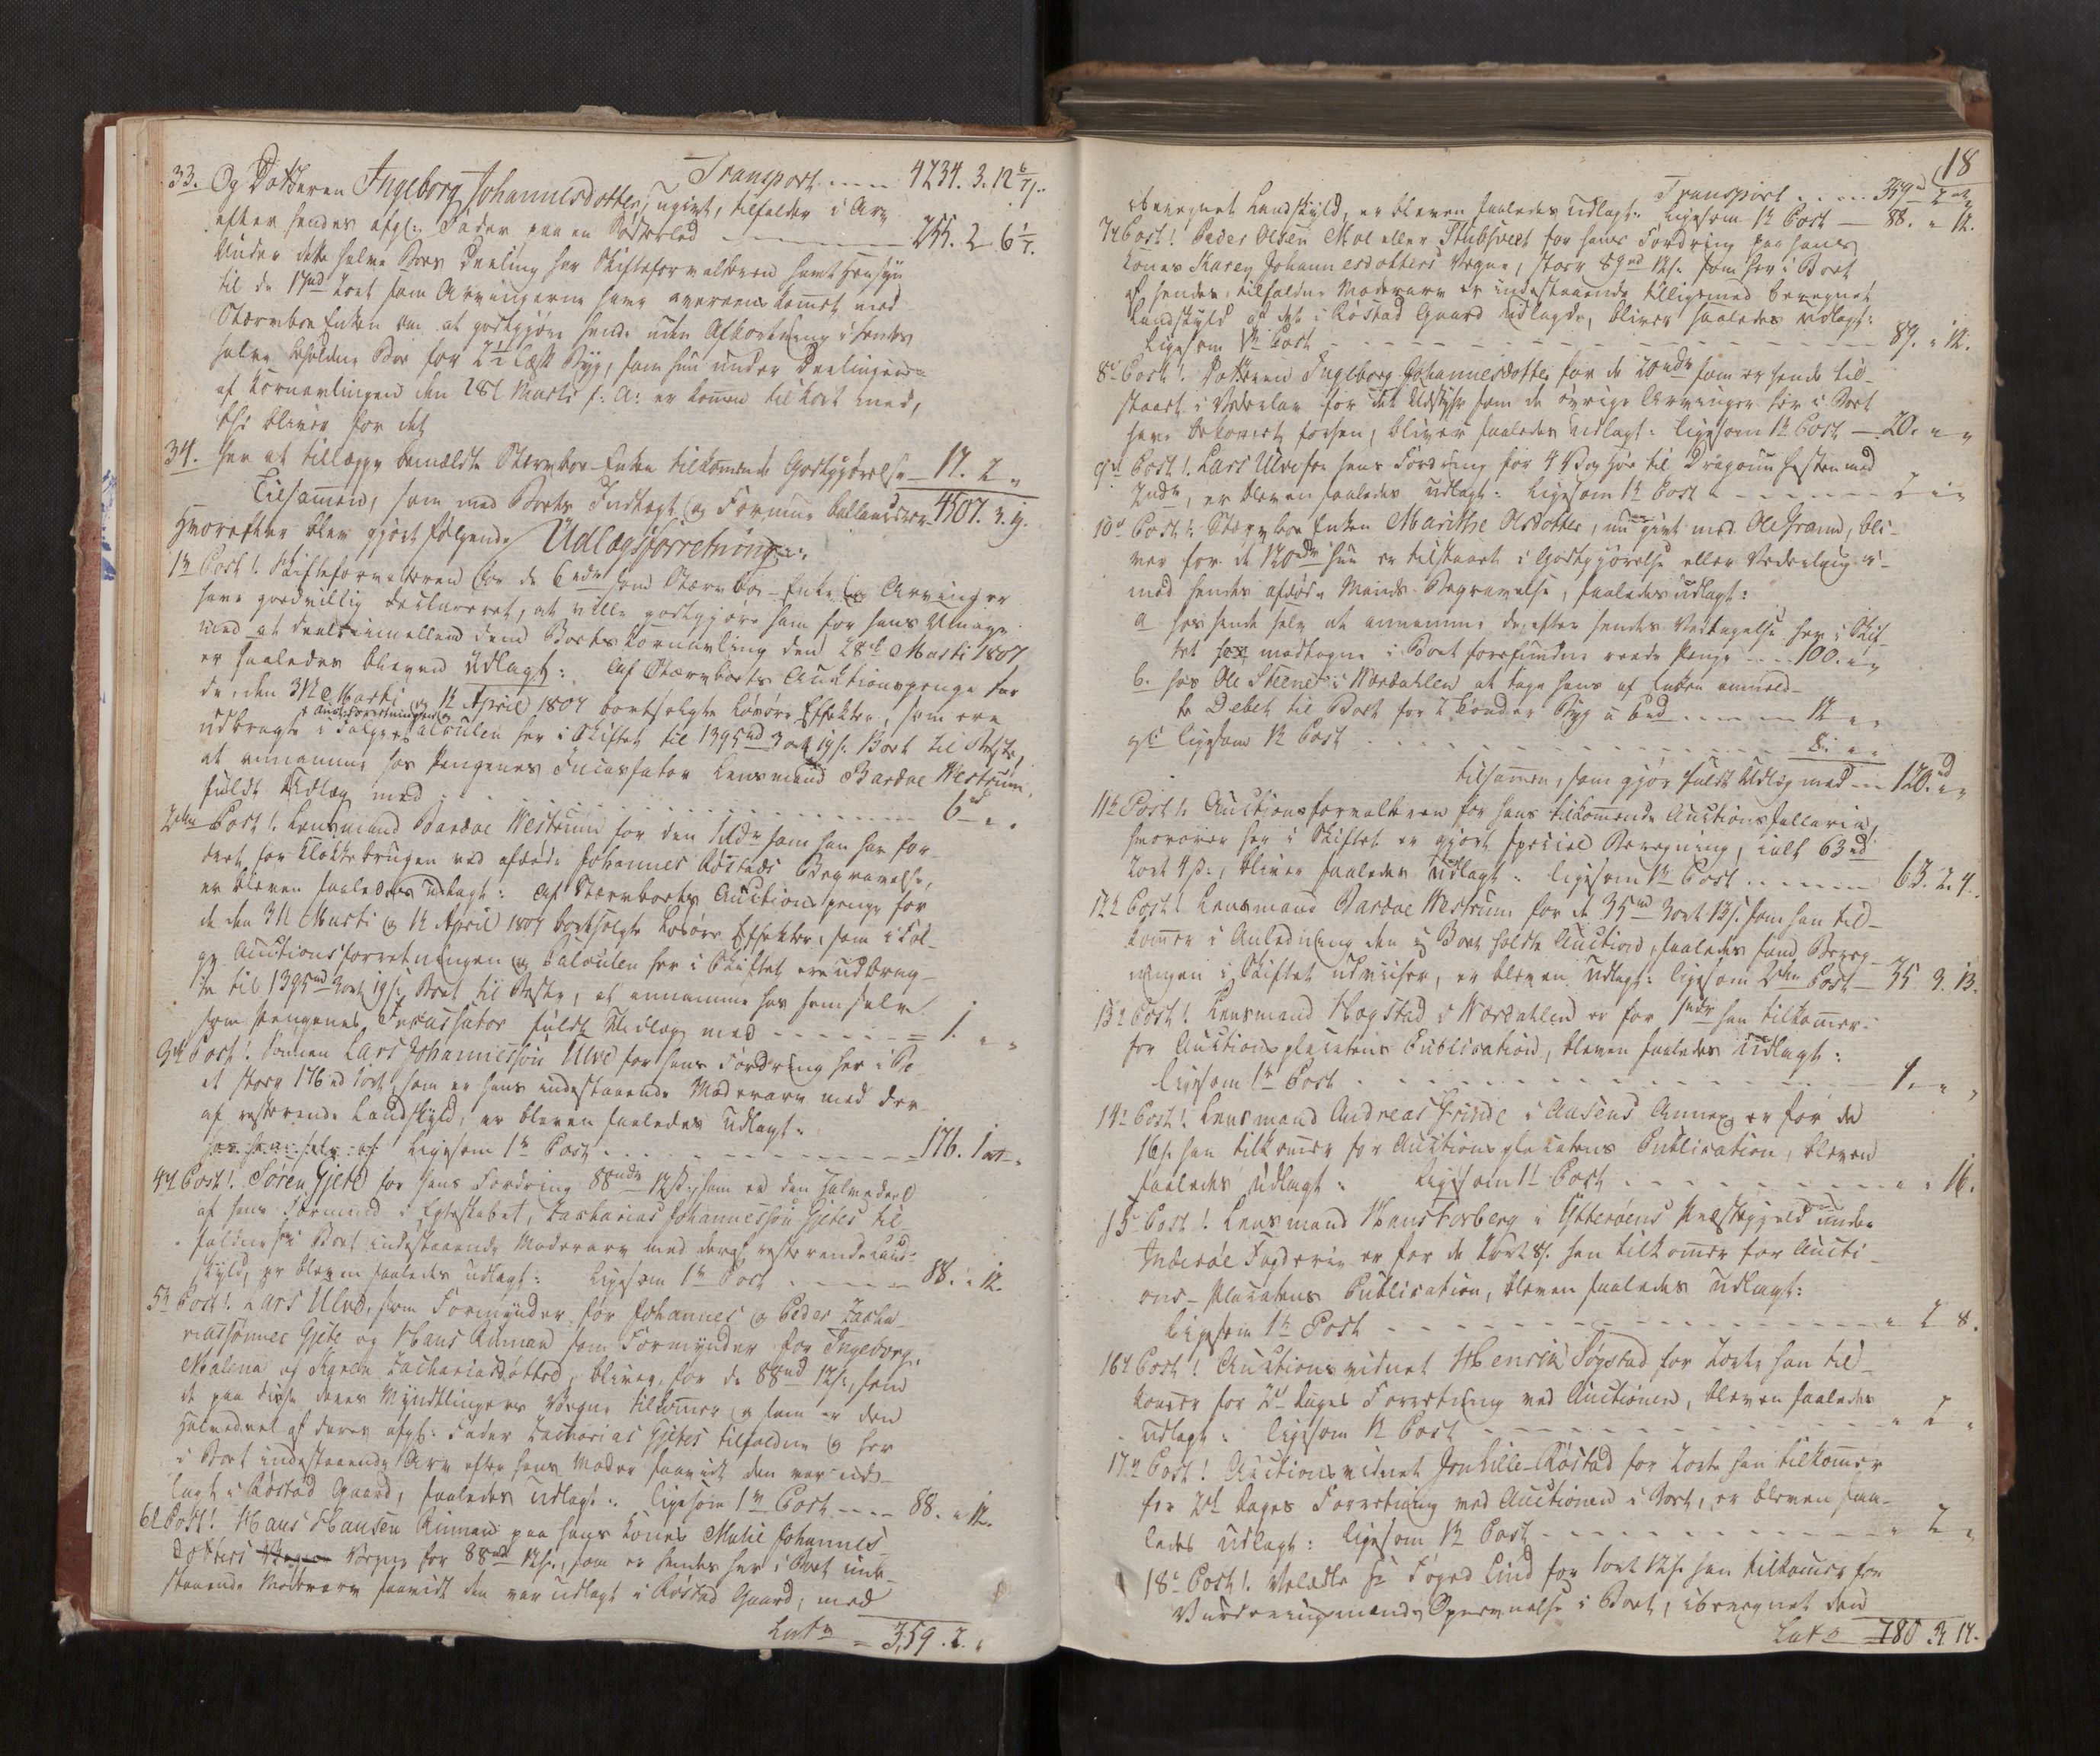 Transport ---- 4234. 3. 12 6/7 s.
33. Og Datteren Ingeborg Johannesdotter, ugivt, tilfalder i Arv
efter hendes afg: Fader paa en Søsterlod ---- 255. 2 6 1/7.
Under dette halve Boes Deeling har Skifteforvalteren havt Hensyn
til de 17 rd 2 ort som Arvingerne have overeenskomet med
Stervboe Enken om at godtgjøre hende uden Afkortning i hendes
halve beholdne Boe for 2 1/2 Tyg, som hun under Deelingen
af Kornavlingen den 28 Marti f: A: er komen til kort med,
thi bliver for det
34. her at tillægge bemældte Stervboe-Enke tilkomende Godtgjørelse - 17. 2 "
Tilsamen, som med Boets Indtægt og Formue ballancerer - 4507. 3. 19.
Hvorefter blev gjort følgende Udlægsforretning:
1te Post!. Skifteforvalteren for de 6 rdr som Stervboe-Enke og Arvinger
have godvillig declareret, at ville godtgjøre ham for hans Umage
med at deele imellem dem Boets Kornavling den 28de Marti 1807,
er saaledes bleven Udlagt: Af Stervboets Auktionspenge for
de, den 31te Marti og 1te April 1807 bortsolgte Løsøre Effekter, som ere
Auct: Forretningen og
udbragte i Følge Calculen her i Skiftet til 1395 rd 3 ort 19 s. Boet til Beste,
at annamme hos Pengenes Incassator Lensmand Bardoe Westrum,
fuldt Udlæg med ---- 6 rd " "
2den Post!. Lensmand Bardoe Westrum for den 1 rdr som han har for-
tient, for Klokkebrugen ved afdøde Johannes Røstads Begravelse,
er bleven saaledes udlagt: Af Stervboets Auctionspenge for
de den 31te Marti og 1te April 1807 bortsolgte Løsøre Effekter, som i Føl-
ge Auctionsforretningen og Calculen her i Skiftet ere udbrag-
te til 1395 rd 3 ort 19 s. Boet til Beste, at annamme hos ham selv
som Pengenes Incassator fuldt Udlæg med ---- 1. " "
3die Post!. Sønnen Lars Johannessøn Ulve for hans Fordring her i Bo-
et stor 176 rd 1 ort, som er hans indestaaende Mødrearv med der-
af resterende Landskyld, er bleven saaledes udlagt:
Ligesom 1te Post ---- 176. 1 "
4de Post!. Søren Gjete for hans Fordring 88 rdr 12 s., som er den halvedeel
af hans Formand i Egteskabet, Zacharias Johannessøn Gjetes til-
faldne her i Boet indestaaende Mødrearv med deraf resterende Land-
skyld, er bleven saaledes udlagt: Ligesom 1te Post ---- 88. " 12.
5te Post!. Lars Ulve, som Formynder for Johannes og Peder Zacha-
riassønner Gjete og Hans Rinnan som Formynder for Ingeborg,
Malena og Zachariasdøttre, bliver for de 88 rd 12 s., som
de paa disse deres Myndtlingers Vegne tilkomer og som er den
Halvedeel af deres afg: Fader Zacharias Gjetes tilfaldne og her
i Boet indestaaende Arv efter hans Moder saavidt den var ud-
lagt i Røstad Gaard, saaledes udlagt: ligesom 1te Post ---- 88. " 12.
6te Post!. Hans Hansen Rinnan paa hans Kones Malie Johannes-
dotters Vegne for 88 rd 12 s., som er hendes her i Boet inde-
staaende Mødrearv saavidt den var udlagt i Røstad Gaard, med
Lat: = 359. 2. "
18
Transport ---- 359 rd 2 ort "
iberegnet Landskyld, er bleven saaledes udlagt: Ligesom 1te Post - 88. " 12.
7de Post!. Peder Olsen Moe eller Stubsveet for hans Fordring paa hans
Kones Karen Johannesdotters Vegne, stor 89 rd 12 s. som her i Boet
af hendes tilfaldne Mødrearv er indestaaende tilligemed beregnet
Landskyld af det i Røstad Gaard udlagde, bliver saaledes udlagt:
Ligesom 1te Post ---- 89. " 12.
8de Post!. Datteren Ingeborg Johannesdotter for de 20 rdr som er hende til-
staaet i Vederlav for det Udstyhr som de øvrige Arvinger her i Boet
have bekomet forhen, bliver saaledes udlagt: ligesom 1te Post - 20. " "
9de Post!. Lars Ulve for hans Fordring for 4 Vog Høe til Dragoun Hesten med
2 rdr, er bleven saaledes udlagt: Ligesom 1te Post ---- 2 " "
10de Post!. Stervboe Enken Marithe Olsdotter, nu givt med Ole Grand, bli-
ver for de 120 rdr hun er tilstaaet i Godtgjørelse eller Vederlag i-
mod hendes afdøde Mands Begravelse, saaledes udlagt:
a hos hende selv at annamme de efter hendes Vedtagelse her i Skif-
tet modtagne i Boet forefundne reede Penge ---- 100. " "
b. hos Ole Steene i Værdahlen at tage hans af Enken anmeld-
te Debet til Boet for 2 Tønder Byg a 6 rd ---- 12 " "
c ligesom 1te Post ---- 8. " "
tilsamen, som gjør fuldt Udlæg med --- 120. rd " "
11te Post!. Auctionsforvalteren for hans tilkomende Auctionssallarium,
hvorover her i Skiftet er gjort speciel Beregning, ialt 63 rd
2 ort 4 s., bliver saaledes udlagt: ligesom 1te Post ---- 63. 2. 4.
12te Post!. Lensmand Bardoe Westrum for de 35 rd 3 ort 13 s. som han til-
komer i Anledning den i Boet holdte Auction, saaledes som Bereg-
ningen i Skiftet udviiser, er bleven udlagt: ligesom 2den Post - 35 3. 13.
13de Post!. Lensmand Hogstad i Værdahlen er for 1 rdr han tilkomer
for Auctionsplacatens Publication, bleven saaledes udlagt:
ligesom 1te Post ---- 1. " "
14de Post!. Lensmand Andreas Grinde i Ausens Annex er for de
16 s. han tilkomer for Auctionsplacatens Publication, bleven
saaledes udlagt: Ligesom 1te Post ---- " " 16.
15de Post!. Lensmand Hans Forberg i Ytterøens Præstegjeld under
Inderøe Fogderie er for de 2 ort 8 s. han tilkomer for Aucti-
ons-Placatens Publication, bleven saaledes udlagt:
Ligesom 1te Post ---- " 2 8.
16de Post!. Auctionsvidnet Henrik Søgstad for 2 ort han til-
komer for 2de Dages Forretning ved Auctionen, bleven saaledes
udlagt: ligesom 1te Post ---- " 2 "
17de Post!. Auctionsvidnet Jon Lille-Røstad for 2 ort han tilkomer
for 2de Dages Forretning ved Auctionen i Boet, er bleven saa-
ledes udlagt: ligesom 1te Post ---- " 2 "
18de Post!. Velædle Hr Foged Lind for 1 ort 12 s. han tilkomer for
Vurderingsmænds Opnævnelse i Boet, iberegnet den
Lat: 780 17.